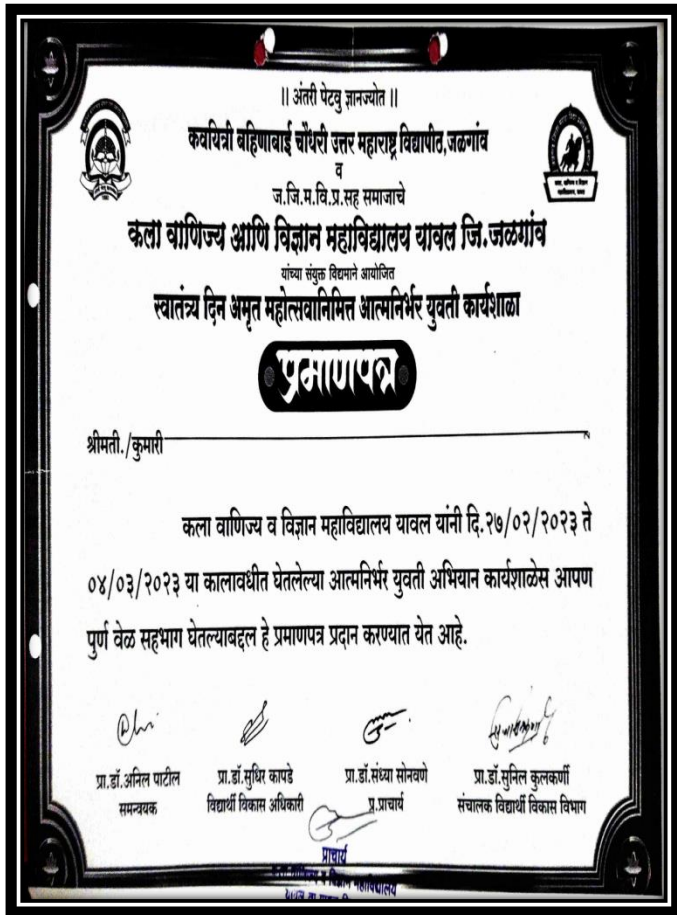 || अंतरी पेटवु ज्ञानज्योत ||
कवयित्री बहिणाबाई चौधरी उत्तर महाराष्ट्र विद्यापीठ,जळगांव
व
ज.जि.म.वि.प्र.सह समाजाचे
कला वाणिज्य आणि विज्ञान महाविद्यालय यावल जि.जळगांव
यांच्या संयुक्त विद्यमाने आयोजित
स्वातंत्र्य दिन अमृत महोत्सवानिमित्त आत्मनिर्भर युवती कार्यशाळा
प्रमाणपत्र
श्रीमती./कुमारी
कला वाणिज्य व विज्ञान महाविद्यालय यावल यांनी दि.२७/०२/२०२३ ते
०४/०३/२०२३ या कालावधीत घेतलेल्या आत्मनिर्भर युवती अभियान कार्यशाळेस आपण
पुर्ण वेळ सहभाग घेतल्याबद्दल हे प्रमाणपत्र प्रदान करण्यात येत आहे.
प्रा.डॉ.अनिल पाटील प्रा.डॉ.सुधिर कापडे प्रा.डॉ.संध्या सोनवणे प्रा.डॉ.सुनिल कुलकर्णी
समन्वयक विद्यार्थी विकास अधिकारी प्र.प्राचार्य संचालक विद्यार्थी विकास विभाग
प्राचार्य
कला वाणिज्य व विज्ञान महाविद्यालय